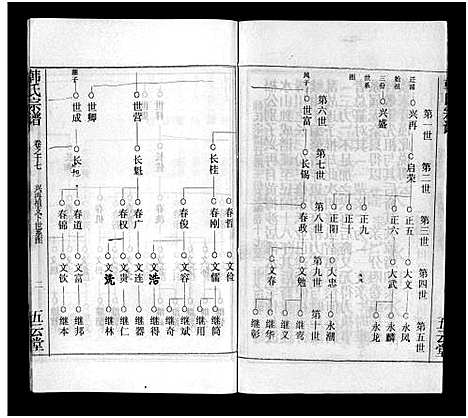 迁浦
始祖
三份
世系
图
第一世
第二世
第三世
第四世
第五世
兴再
兴盛
启荣
正五
正六
正九
正十
正阳
大文
大武
大忠
永凤
永麟
永龙
永潮
第六世
第七世
第八世
第九世
第十世
世富
长锡
春政
文勉
文春
继鸾
继义
继华
继彰
世营
世卿
世成
长桂
长魁
长旭
春哲
春刚
春俊
春广
春权
春道
春锦
文俭
文儒
文容
文浩
文连
文贵
文洗
文富
文钦
继简
继用
继斌
继奇
继得
继器
继仁
继林
继邦
继本
韩氏宗谱
卷之十七
兴再祖支下世系图
五云堂
五云堂